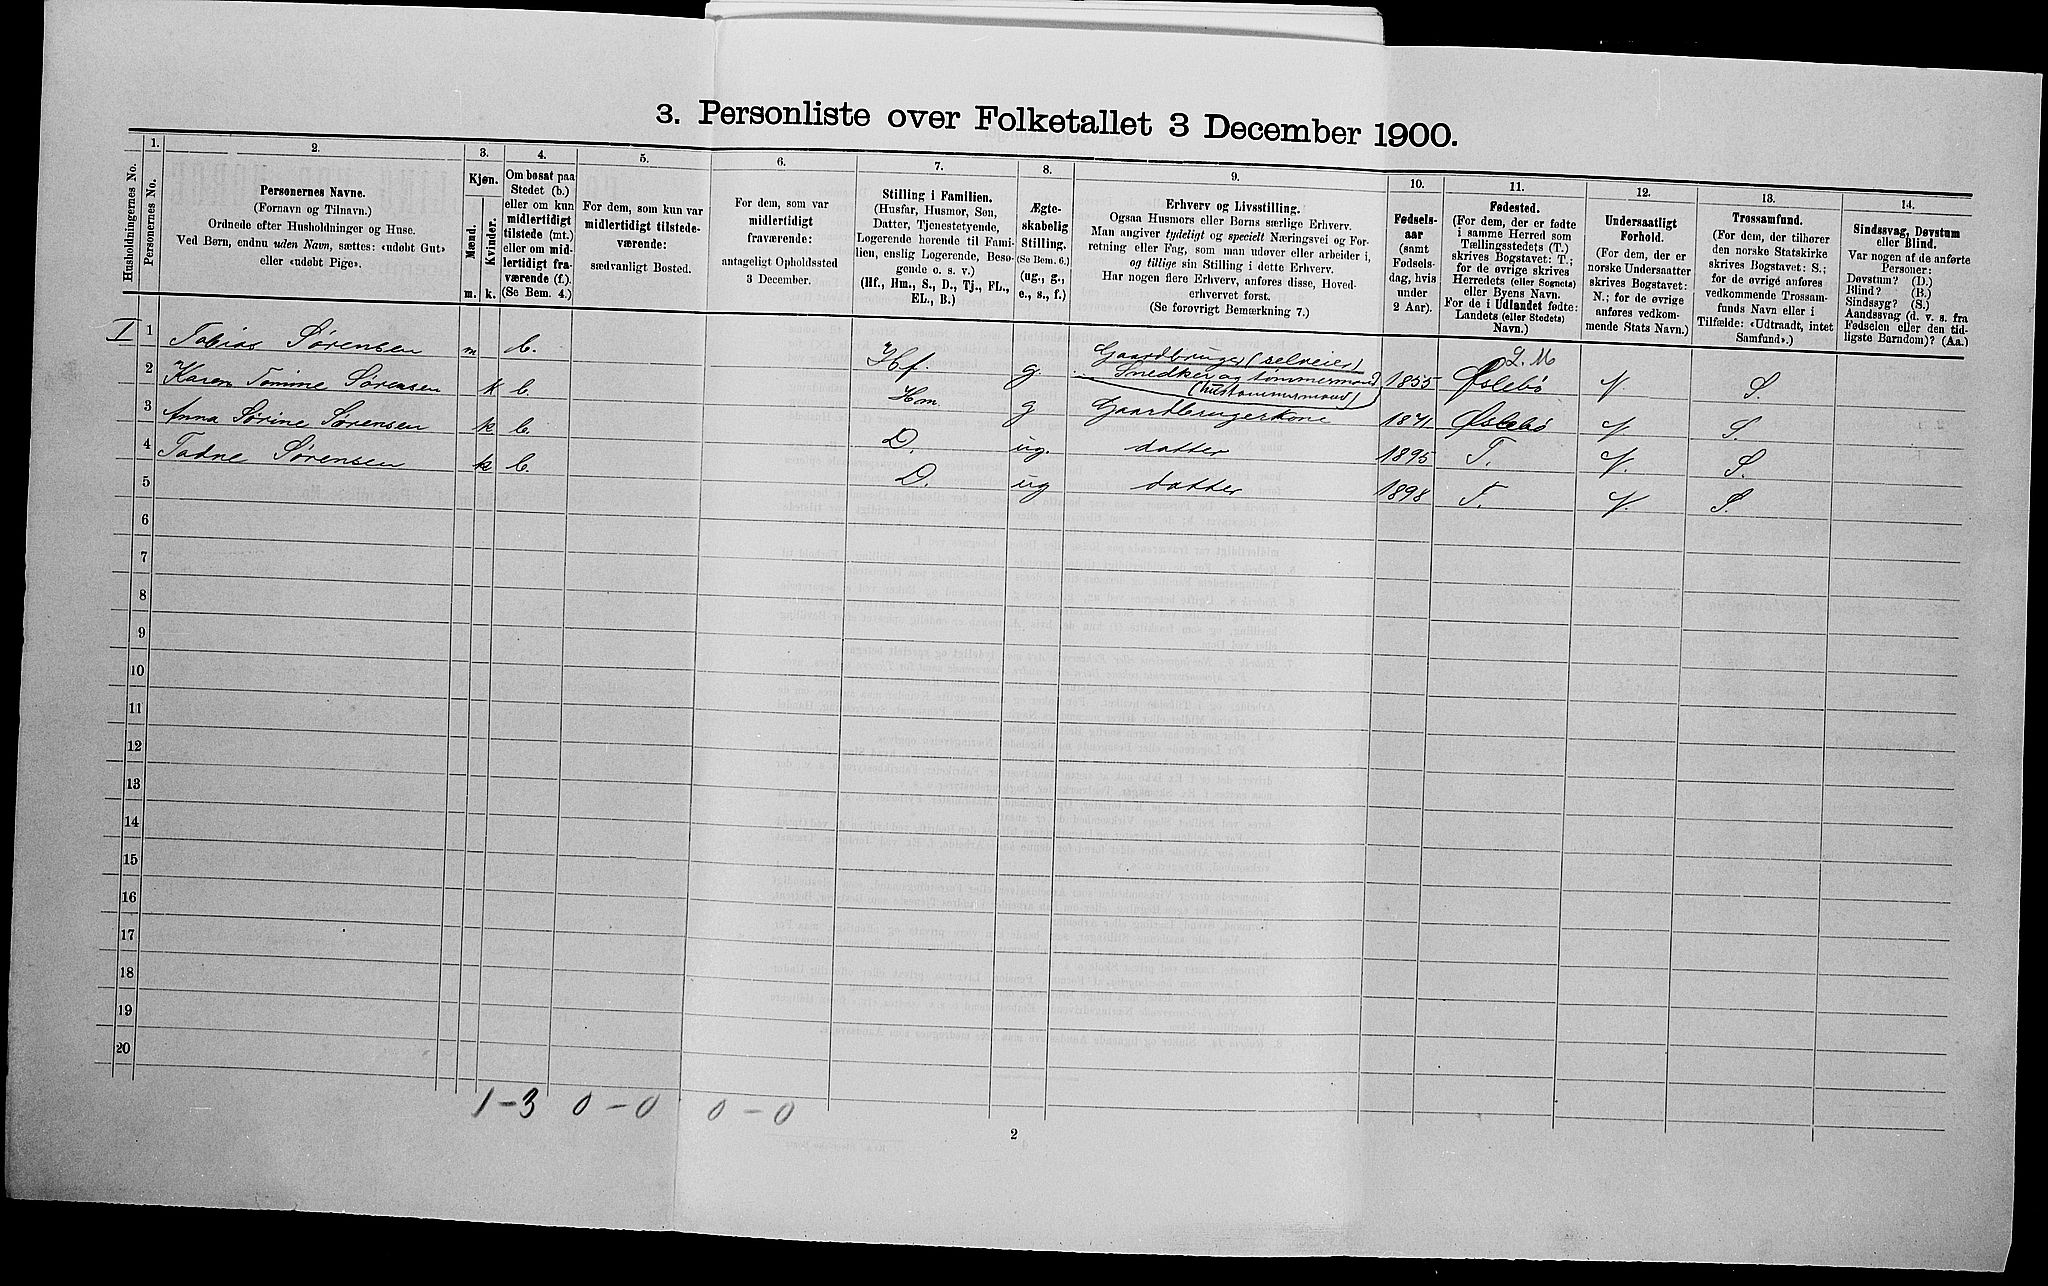 3. Personliste over Folketallet 3 December 1900.
Husholdningernes No.
1.
Personernes No.
2.
Personernes Navne.
(Fornavn og Tilnavn.)
Ordnede efter Husholdninger og Huse.
Ved Børn, endnu uden Navn, sættes: «udøbt Gut»
eller «udøbt Pige».
3.
Kjøn.
Mænd.
Kvinder.
m.
k.
4.
Om bosat paa
Stedet (b.)
eller om kun
midlertidigt
tilstede (mt.)
eller om mid-
lertidigt fra-
værende (f.).
(Se Bem. 4.)
5.
For dem, som kun var
midlertidigt tilstede-
værende:
sædvanligt Bosted.
6.
For dem, som var
midlertidigt
fraværende:
antageligt Opholdssted
3 December.
7.
Stilling i Familien.
(Husfar, Husmor, Søn,
Datter, Tjenestetyende,
Logerende hørende til Fami-
lien, enslig Logerende, Besø-
gende o. s. v.)
(Hf., Hm., S., D., Tj., FL.,
EL., B.)
8.
Ægte-
skabelig
Stilling.
(Se Bem. 6.)
(ug., g.,
e., s., f.)
9.
Erhverv og Livsstilling.
Ogsaa Husmors eller Børns særlige Erhverv.
Man angiver tydeligt og specielt Næringsvei og For-
retning eller Fag, som man udøver eller arbeider i,
og tillige sin Stilling i dette Erhverv.
Har nogen flere Erhverv, anføres disse, Hoved-
erhvervet først.
(Se forøvrigt Bemærkning 7.)
10.
Fødsels-
aar
(samt
Fødsels-
dag, hvis
under
2 Aar).
11.
Fødested.
(For dem, der er fødte
i samme Herred som
Tællingsstedets (T.)
skrives Bogstavet: T.;
for de øvrige skrives
Herredets (eller Sognets)
eller Byens Navn.
For de i Udlandet fødte:
Landets (eller Stedets)
Navn.)
12.
Undersaatligt
Forhold.
(For dem, der er
norske Undersaatter
skrives Bogstavet:
N.; for de øvrige
anføres vedkom-
mende Stats Navn.)
13.
Trossamfund.
(For dem, der tilhører
den norske Statskirke
skrives Bogstavet: S.;
for de øvrige anføres
vedkommende Trossam-
funds Navn eller i
Tilfælde: «Udtraadt, intet
Samfund».)
14.
Sindssvag, Døvstum
eller Blind.
Var nogen af de anførte
Personer:
Døvstum? (D.)
Blind? (B.)
Sindssyg? (S.)
Aandssvag (d. v. s. fra
Fødselen eller den tid-
ligste Barndom)? (Aa.)
I 1 Tobias Sørensen m b. Hf. g. Gaardbruger (selveier) Snedker og tømmermand (hustømmermand) 1855 L. M Øslebø N S.
2 Karen Tomine Sørensen k b. Hm. g Gaardbrugerkone 1871 Øslebø N S.
3 Anna Sørine Sørensen k b. D. ug. datter 1895 T. N. S.
4 Tadne Sørensen k b. D. ug datter 1898 T. N. S.
5
6
7
8
9
10
11
12
13
14
15
16
17
18
19
20
1-3 0-0 0-0
2